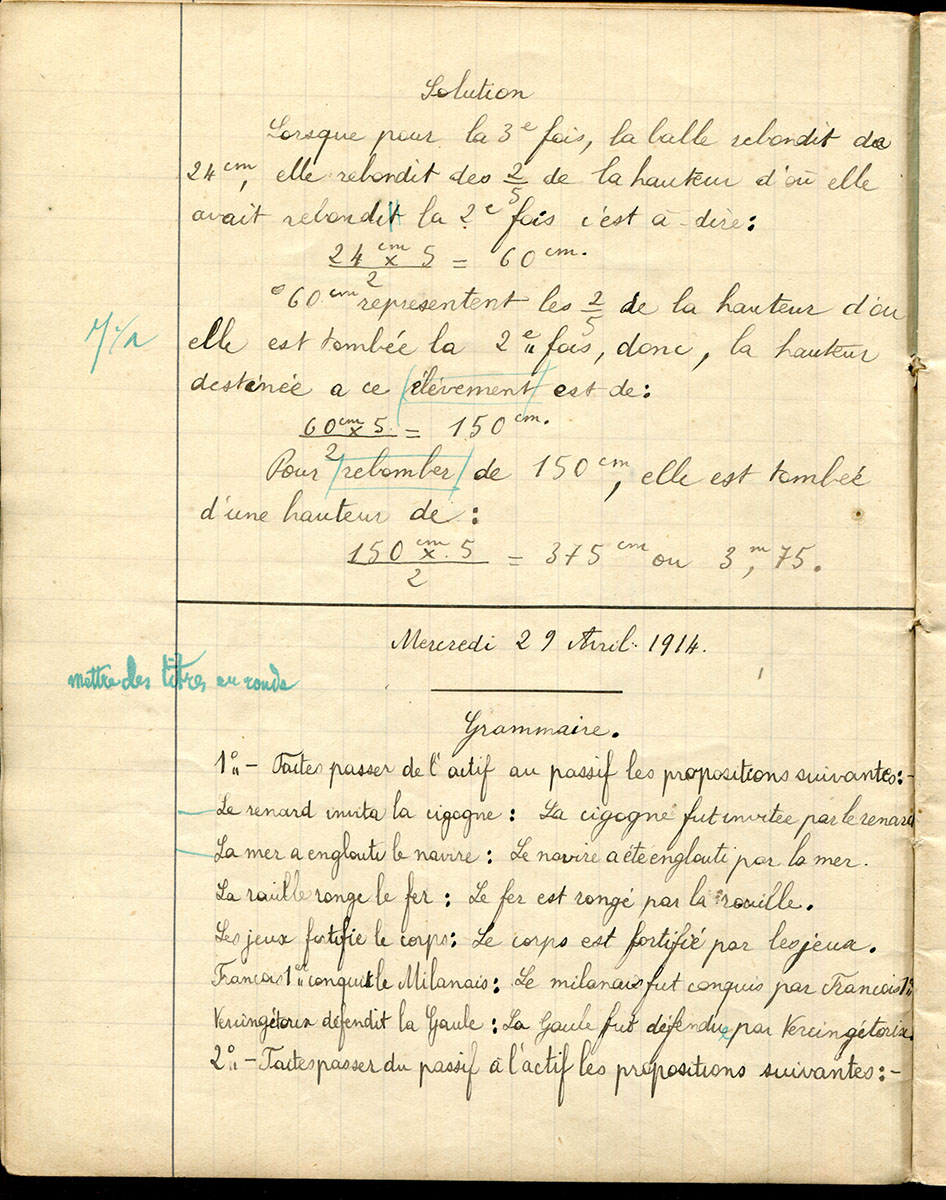 Solution
Lorsque pour la 3e fois, la balle rebondit de
24 cm, elle rebondit des 2/5 de la hauteur d'où elle
avait rebondit la 2e fois c'est à-dire:
24 cm x 5 / 2 = 60 cm.
60 cm representent les 2/5 de la hauteur d'ou
elle est tombée la 2e fois, donc, la hauteur
destinée a ce élèvement est de:
60 cm x 5 / 2 = 150 cm.
Pour rebomber de 150 cm, elle est tombée
d'une hauteur de:
150 cm x 5 / 2 = 375 cm ou 3m,75.
Mercredi 29 Avril 1914.
mettre des titres en ronde
Grammaire.
1o - Faites passer de l'actif au passif les propositions suivantes:-
Le renard invita la cigogne: La cigogne fut invitée par le renard
La mer a englouti le navire: Le navire a été englouti par la mer.
La rouille ronge le fer: Le fer est rongé par la rouille.
Les jeux fortifie le corps: Le corps est fortifié par les jeux.
Francois 1er conquit le Milanais: Le milanais fut conquis par Francois 1er
Vercingétorix défendit la Gaule: La Gaule fut défendue par Vercingétorix.
2o - Faites passer du passif à l'actif les propositions suivantes:-